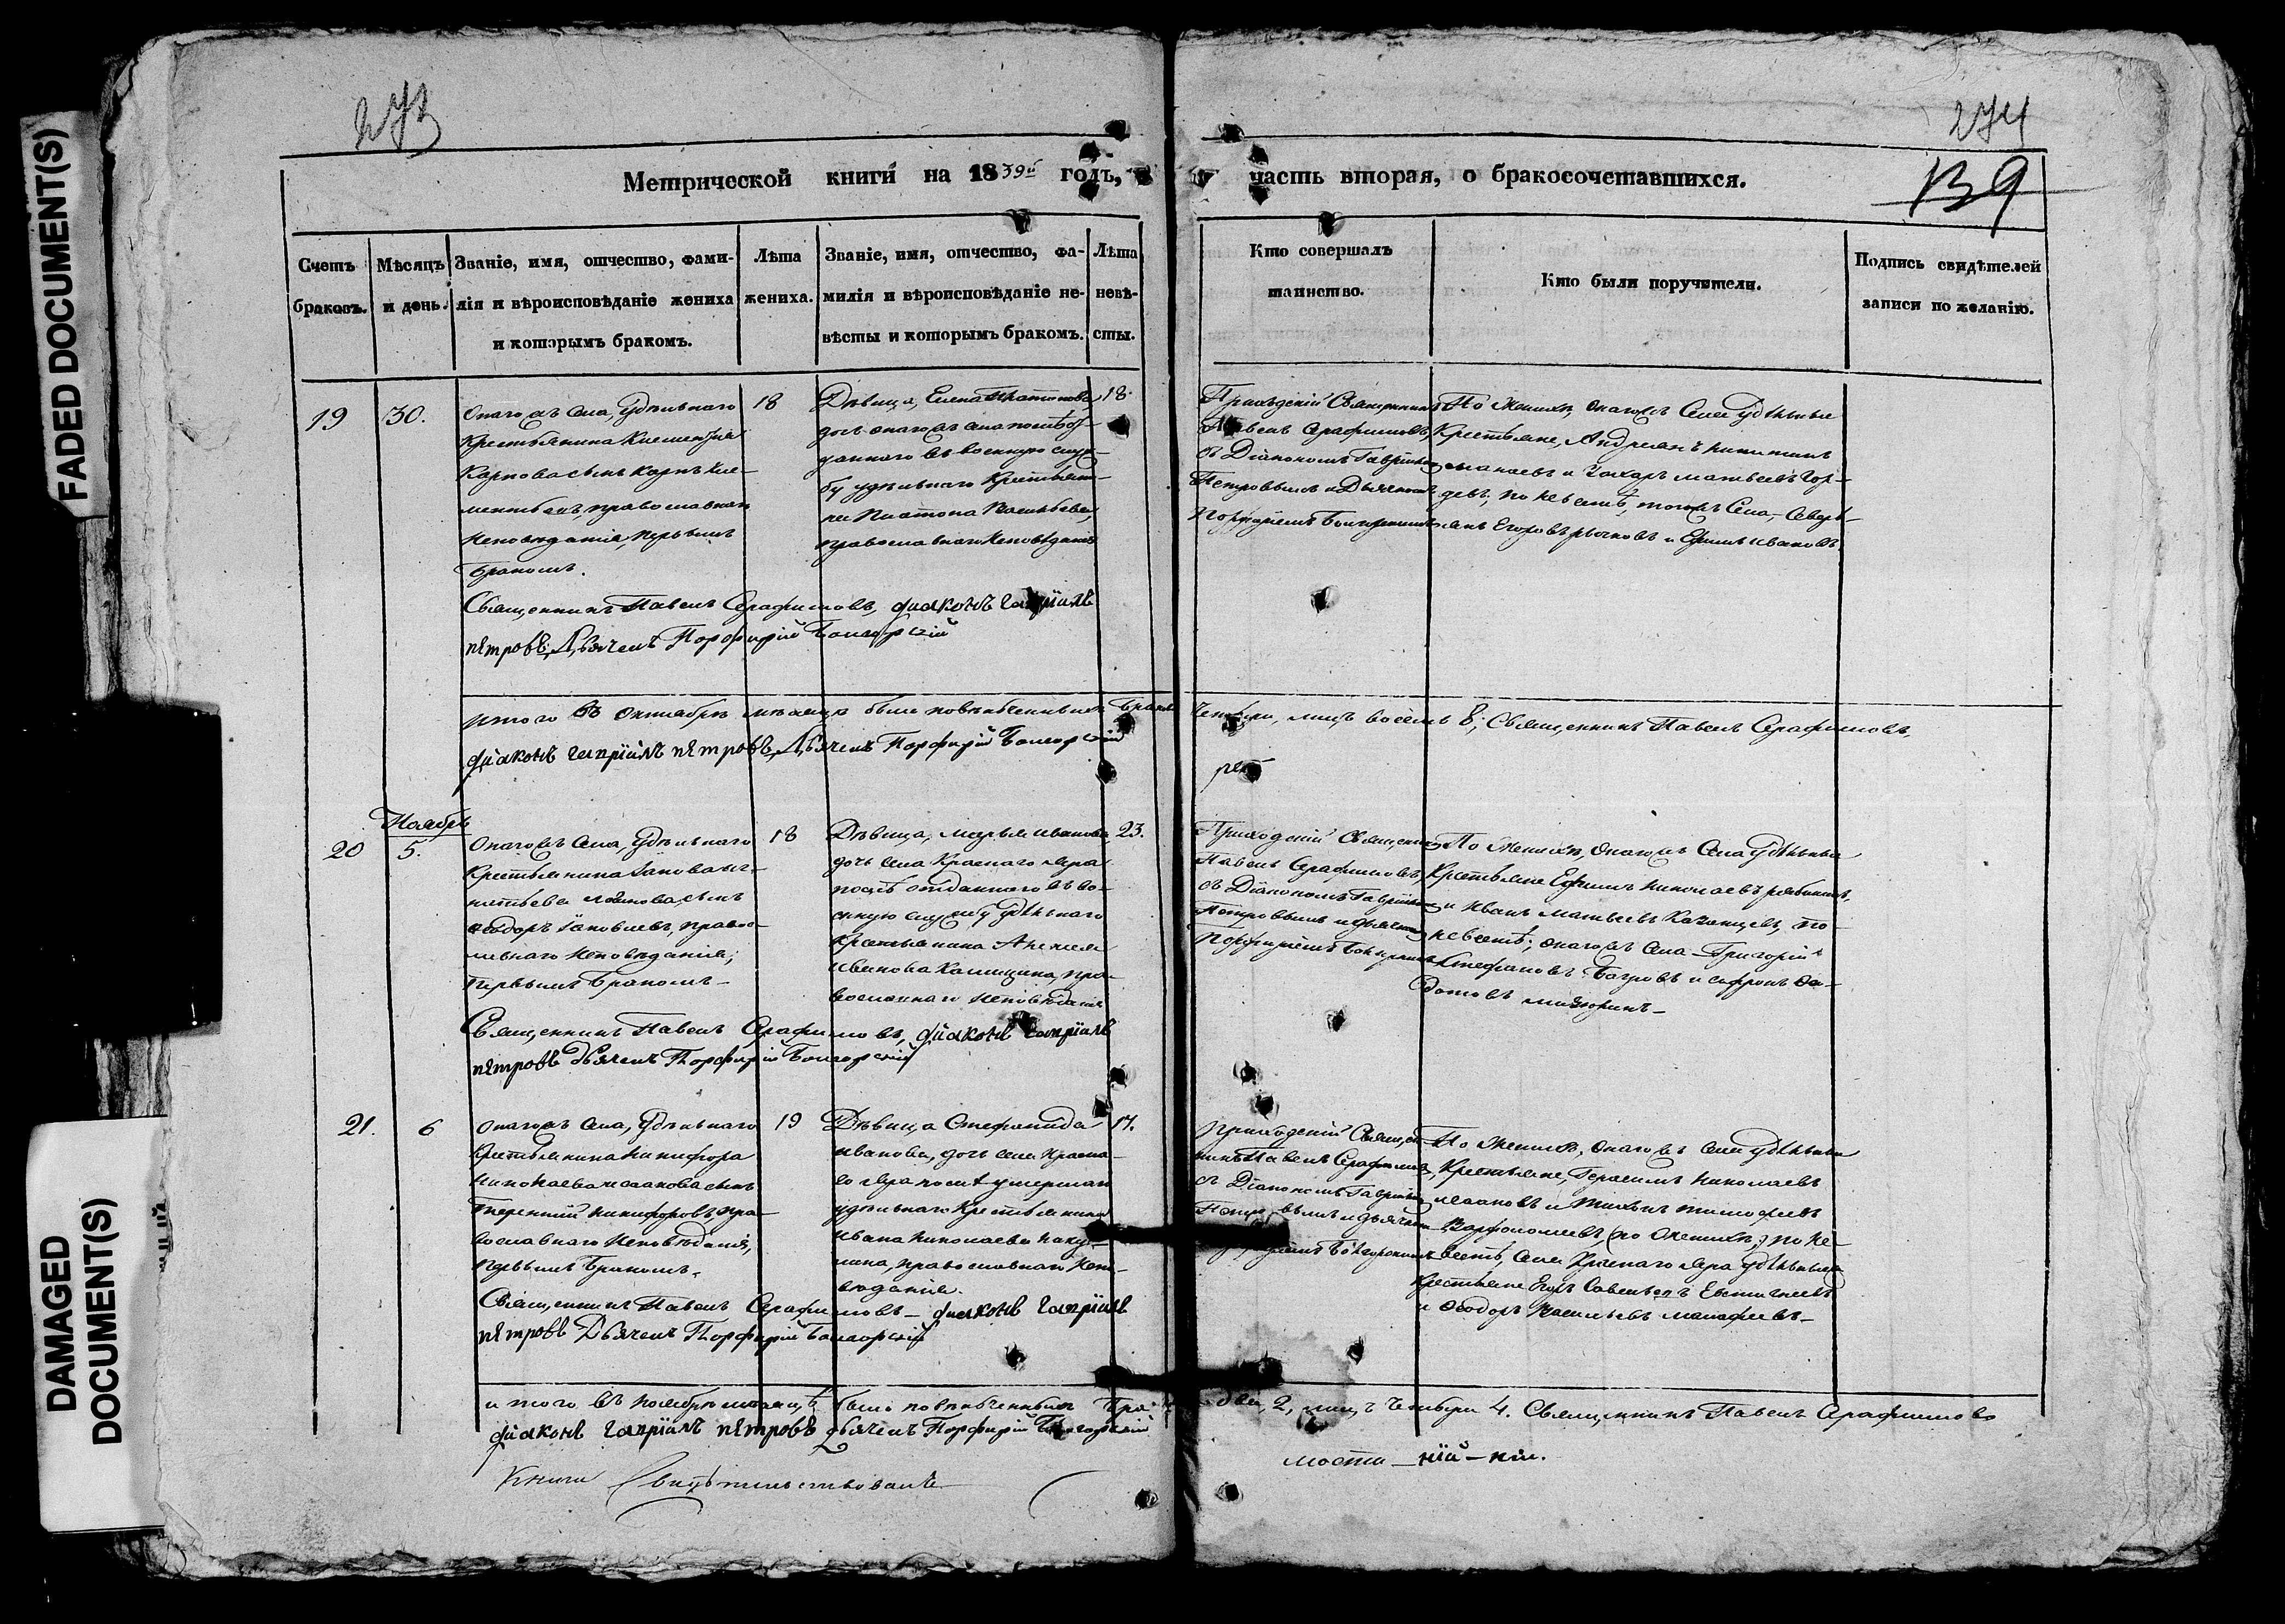 FADED DOCUMENT(S)
DAMAGED DOCUMENT(S)
273
274
139
Метрической книги на 1839й годъ,
часть вторая, о бракосочетавшихся.
Счетъ браковъ.
Мѣсяцъ и день.
Званіе, имя, отчество, фами-
лія и вѣроисповѣданіе жениха
и которымъ бракомъ.
Лѣта жениха.
Званіе, имя, отчество, фа-
милія и вѣроисповѣданіе не-
вѣсты и которымъ бракомъ.
Лѣта невѣ-
сты.
Кто совершалъ
таинство.
Кто были поручители.
Подпись свидѣтелей
записи по желанію.
19
30.
Онагожъ села, удѣльнаго
Крестьянина Климентія
Карпова сынъ Карпъ Кле-
ментьевъ, православнаго
исповѣданія, первымъ
бракомъ.
18
Дѣвица, Елена Платонова,
дочь онагожъ села послѣ от-
даннаго въ военную служ-
бу удѣльнаго Крестьяни-
на Платона Васильева,
православнаго исповѣданія
18.
Приходскій Священникъ
Павелъ Серафимовъ,
съ Діакономъ Гавріиломъ
Петровымъ и Дьячкомъ
Порфиріемъ
По женихѣ, онагожъ села удѣльные
Крестьяне, Андреянъ Никитинъ
и Захаръ Матвеевъ Гор-
девъ, по невѣстѣ, тогожъ села,
Егоровъ и Ефимъ Ивановъ
Священникъ Павелъ Серафимовъ, діаконъ гавріилъ
пѣтровъ, Дьячекъ Порфирій
итого въ октябрѣ мѣсяцѣ было повѣнчанныхъ браковъ
четыре, лицъ восемь 8; Священникъ Павелъ Серафимовъ,
діаконъ гавріилъ пѣтровъ, Дьячекъ Порфирій
Ноябрь
20
5.
Онагожъ села, удѣльнаго
Крестьянина Іакова Иг-
натьева сынъ
Ѳеодоръ Іаковлевъ, право-
славнаго исповѣданія,
первымъ бракомъ
18
Дѣвица, Марья Иванова
дочь села Краснаго Яра
послѣ отданнаго въ во-
енную службу удѣльнаго
крестьянина Алексея
Иванова Калинина, пра-
вославнаго исповѣданія
23.
Приходскій Священникъ
Павелъ Серафимовъ,
съ Діакономъ Гавріиломъ
Петровымъ и дьячкомъ
Порфиріемъ
По женихѣ, онагожъ села удѣльные
Крестьяне Ефимъ Николаевъ
и Иванъ Матвеевъ Казанцевъ, по
невѣстѣ, онагожъ села Григорій
Стефановъ и Сафронъ Фе-
дотовъ
Священникъ Павелъ Серафимовъ, діаконъ гавріилъ
пѣтровъ дьячекъ Порфирій
21.
6
Онагожъ села, удѣльнаго
Крестьянина Никифора
Николаева Исакова сынъ
Терентій Никифоровъ, пра-
вославнаго исповѣданія,
первымъ бракомъ.
19
Дѣвица Степанида
Иванова, дочь села Красна-
го Яра послѣ умершаго
удѣльнаго Крестьянина
Ивана Николаева
православнаго испо-
вѣданія.
17.
Приходскій Священ-
никъ Павелъ Серафимовъ,
съ Діакономъ Гавріиломъ
Петровымъ и дьячкомъ
По женихѣ, онагожъ села удѣльные
Крестьяне, Герасимъ Николаевъ
Исаковъ и Тихонъ Тимофеевъ
Варфоломеевъ, (по женихѣ;) по не-
вѣстѣ, села Краснаго Яра удѣльные
крестьяне Савельевъ
и Ѳеодоръ Васильевъ
Священникъ Павелъ Серафимовъ діаконъ гавріилъ
пѣтровъ Дьячекъ Порфирій
итого въ ноябрѣ мѣсяцѣ было повѣнчанныхъ
два, 2, лицъ четыре 4. Священникъ Павелъ Серафимовъ
діаконъ гавріилъ пѣтровъ дьячекъ Порфирій